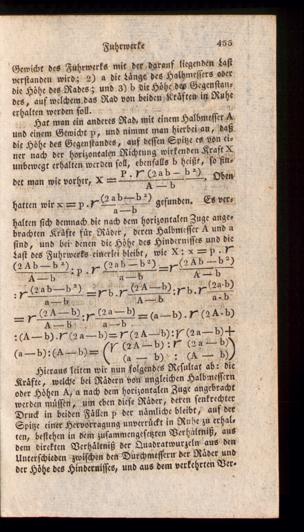 Fuhrwerke 455
Gewicht des Fuhrwerks mit der darauf liegenden Last
verstanden wird; 2) a die Länge des Halbmessers oder
die Höhe des Rades; und 3) b die Höhe des Gegenstan-
des, auf welchem das Rad von beiden Kräften in Ruhe
erhalten werden soll.
Hat man ein anderes Rad, mit einem Halbmesser A
und einem Gewicht p, und nimmt man hierbei an, daß
die Höhe des Gegenstandes, auf dessen Spitze es von ei-
ner nach der horizontalen Richtung wirkenden Kraft X
unbewegt erhalten werden soll, ebenfalls b heißt, so fin-
det man wie vorher, X = P. r (2ab — b²) / A — b. Oben
hatten wir x = p. r (2ab — b²) / a — b gefunden. Es ver-
halten sich demnach die nach dem horizontalen Zuge ange-
brachten Kräfte für Räder, deren Halbmesser A und a
sind, und bei denen die Höhe des Hindernisses und die
Last des Fuhrwerks einerlei bleibt, wie X : x = p . r
(2Ab — b²) / A — b : p . r (2ab — b²) / a — b = r (2Ab — b²) / A — b
: r (2ab — b²) / a — b = r b . r (2A-b) / A — b : r b . r (2a-b) / a - b
= r (2A — b) / A — b : r (2a — b) / a — b = (a — b) . r (2A - b)
: (A — b) . r (2a — b) = r (2A — b) : r (2a — b) +
(a — b) : (A — b) = ( r (2A — b) : r (2a — b) / (a — b) : (A — b) )
Hieraus leiten wir nun folgendes Resultat ab: die
Kräfte, welche bei Rädern von ungleichen Halbmessern
oder Höhen A, a nach dem horizontalen Zuge angebracht
werden müssen, um eben diese Räder, deren senkrechter
Druck in beiden Fällen p der nämliche bleibt, auf der
Spitze einer Hervorragung unverrückt in Ruhe zu erhal-
ten, bestehen in dem zusammengesetzten Verhältniß, aus
dem direkten Verhältniß der Quadratwurzeln aus den
Unterschieden zwischen den Durchmessern der Räder und
der Höhe des Hindernisses, und aus dem verkehrten Ver-